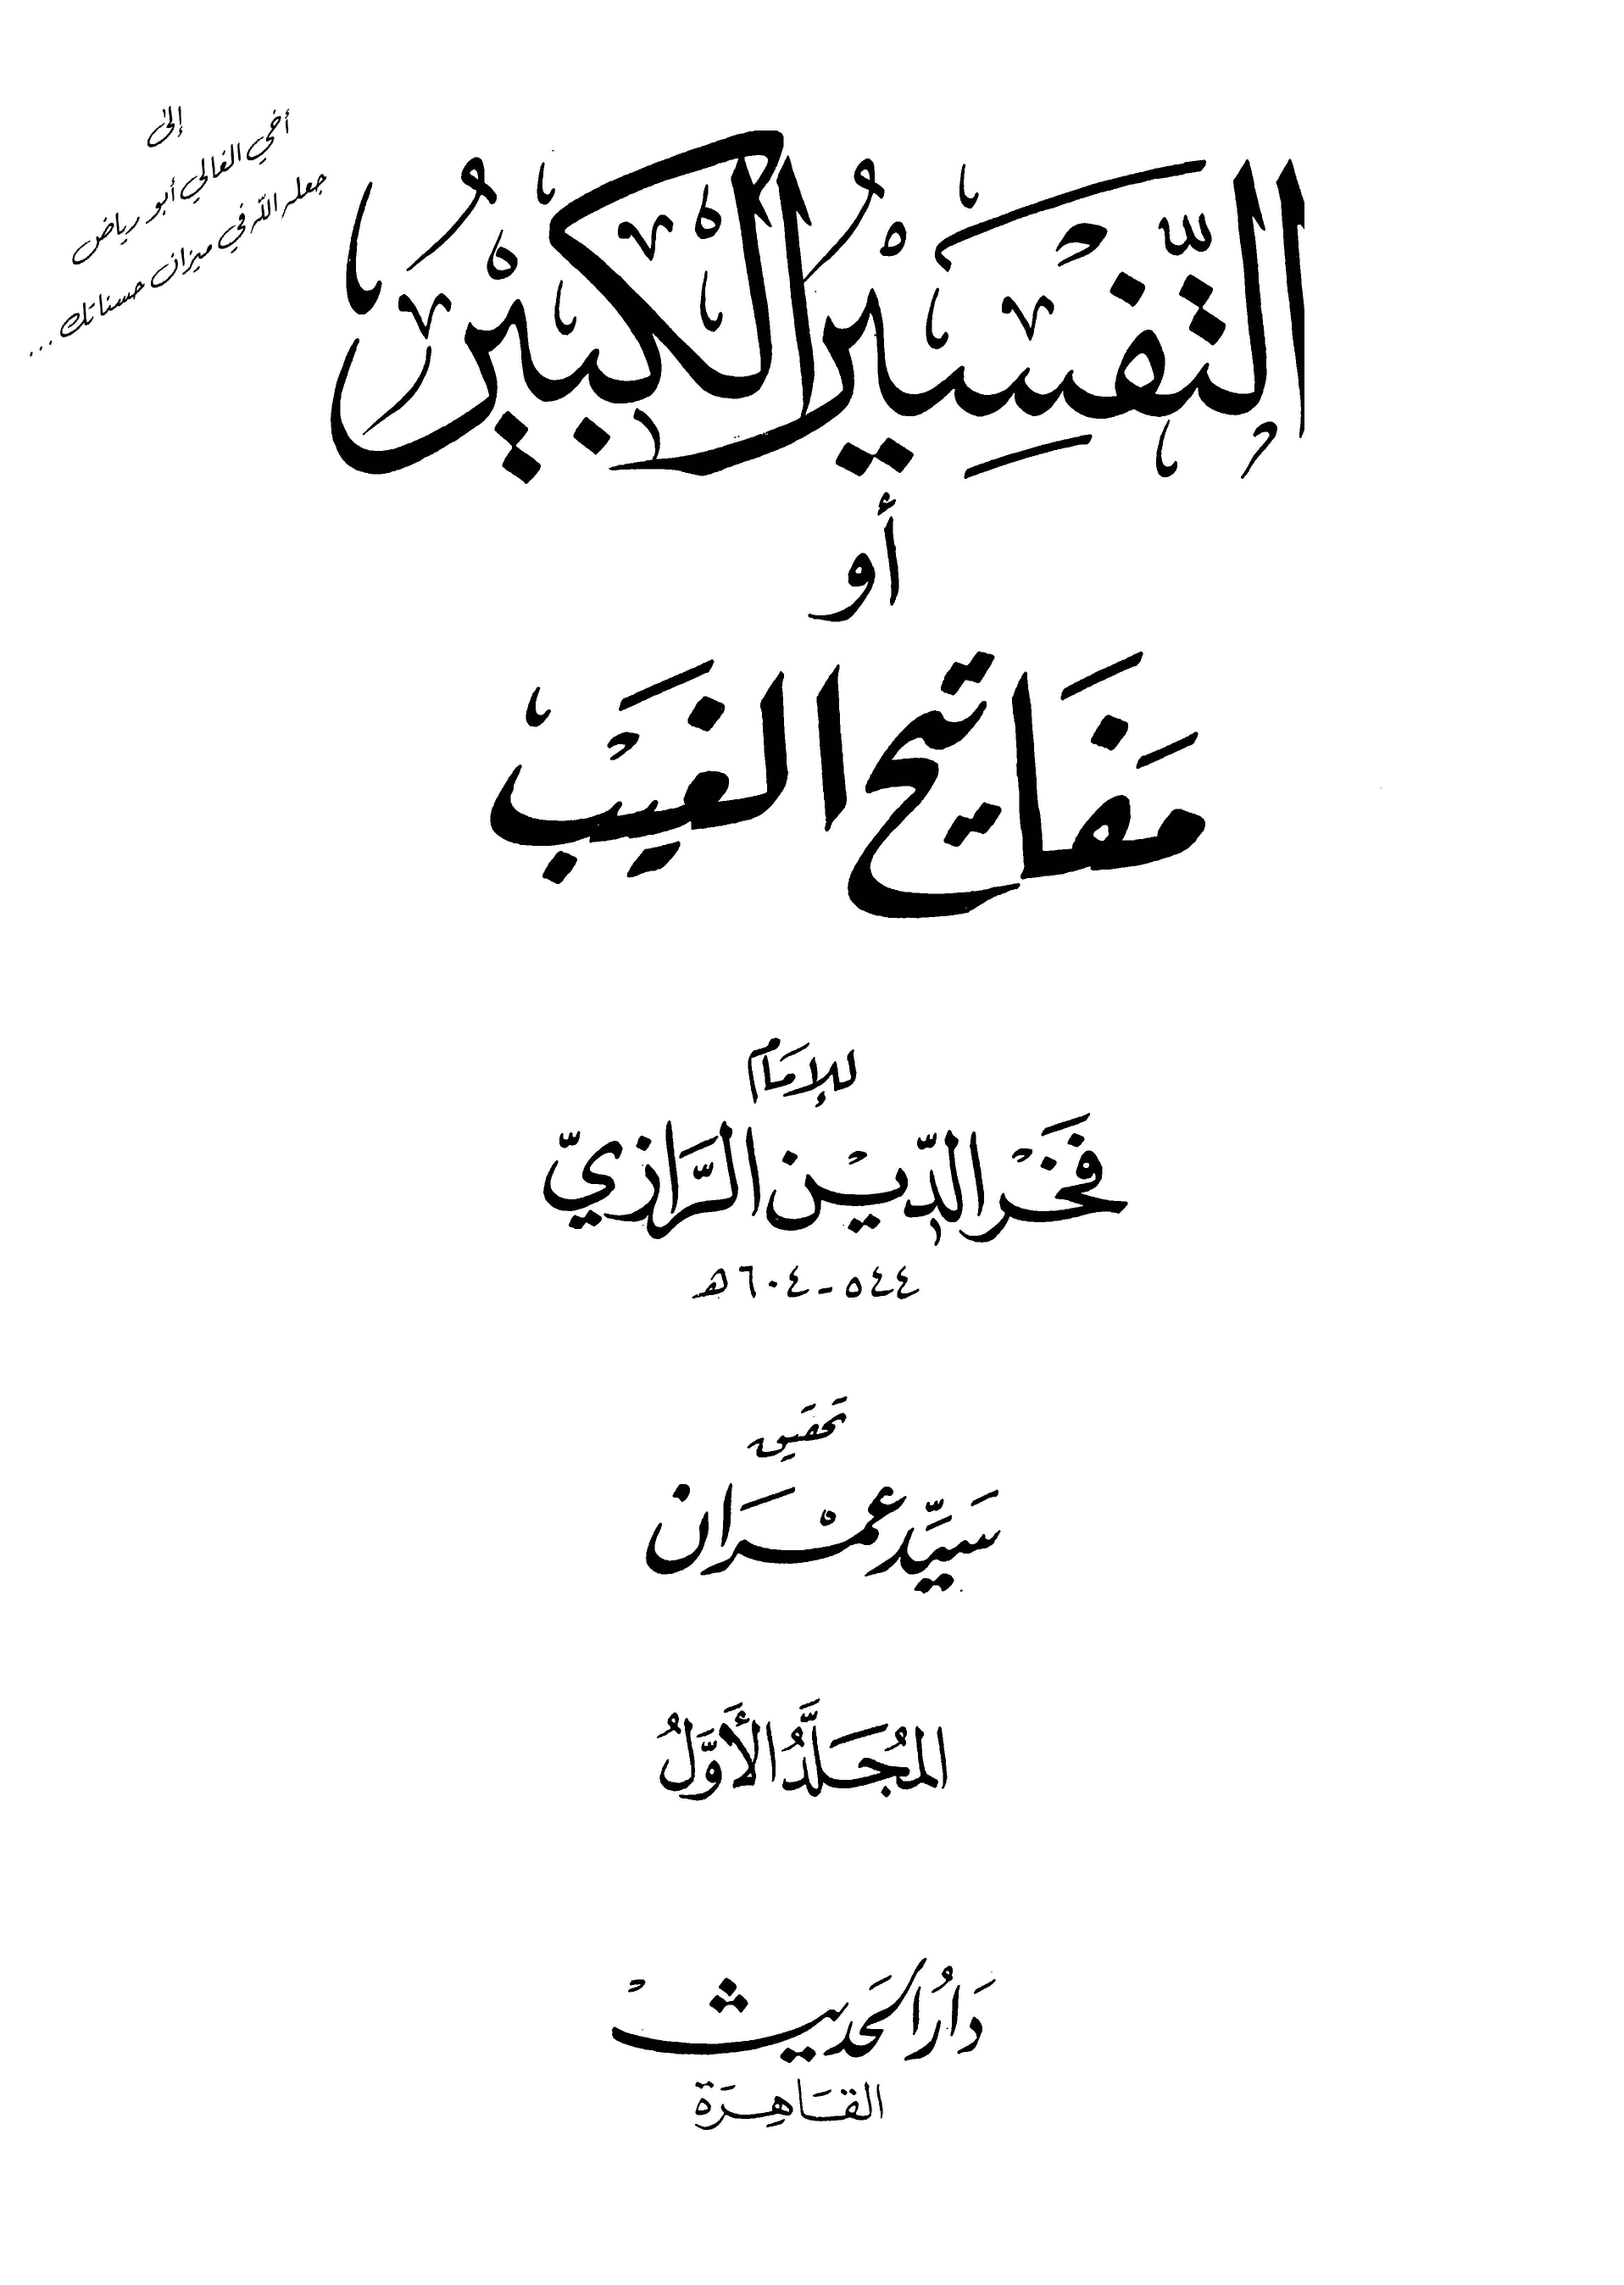 إلى
أخي الغالي أبو رياض
جعله الله في ميزان حسناتك...
التَّفْسِيْرُ الْكَبِيْرُ
أو
مَفَاتيح الغَيْبْ
للإمَام
فَخْر الدِّيْن الرَّازيّ
٥٤٤ - ٦٠٤ هـ
تحَقَيق
سَيِّد عمْرَان
المُجَلَّدُ الأَوَّلُ
دَارُ الحَديثْ
القَاهِرَة